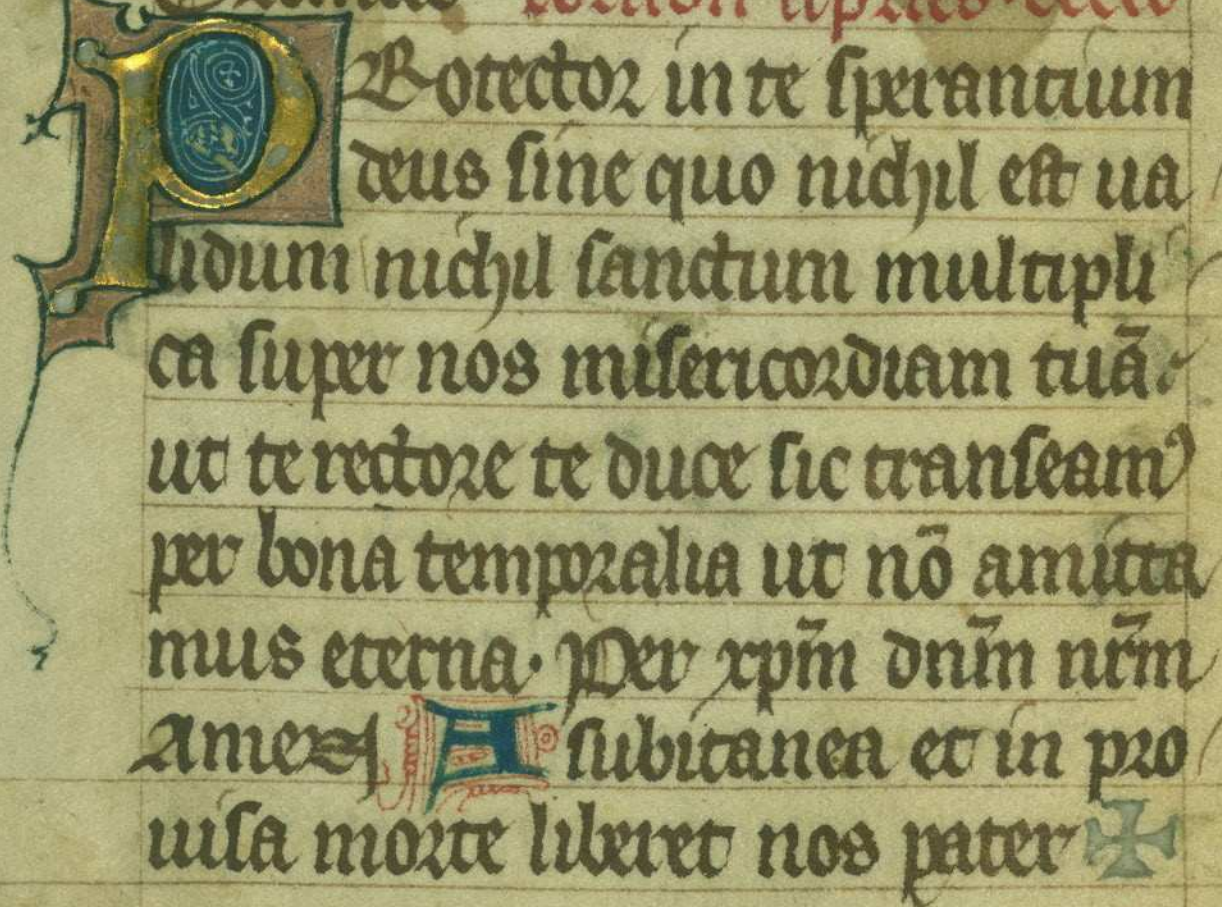 PRotector in te sperantium
deus sine quo nichil est ua
lidum nichil sanctum multipli
ca super nos misericordiam tuā.
ut te rectore te duce sic transeamꝰ
per bona temporalia ut nō amitta
mus eterna. Per xp̄m dn̄m nr̄m
Amen A subitanea et in pro
uisa morte liberet nos pater ✠